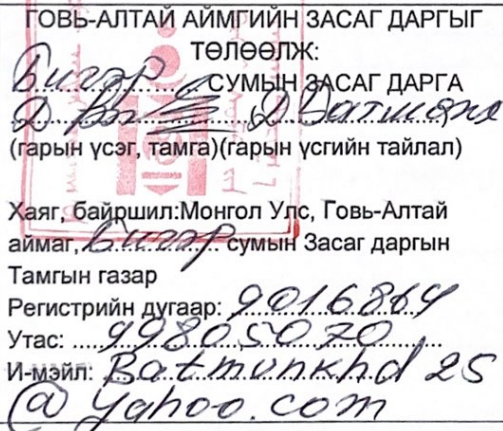 ГОВЬ-АЛТАЙ АЙМГИЙН ЗАСАГ ДАРГЫГ
ТӨЛӨӨЛЖ:
Бигэр СУМЫН ЗАСАГ ДАРГА
Д Батмөнх
(гарын үсэг, тамга)(гарын үсгийн тайлал)
Хаяг, байршил:Монгол Улс, Говь-Алтай
аймаг, Бигэр сумын Засаг даргын
Тамгын газар
Регистрийн дугаар: 9016864
Утас: 99805070
И-мэйл: Batmunkhd 25
@ yahoo.com